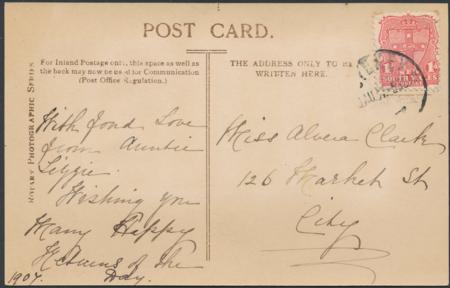 POST CARD.
For Inland Postage only, this space as well as
the back may now be used for Communication
(Post Office Regulation.)
THE ADDRESS ONLY TO BE
WRITTEN HERE.
ROTARY PHOTOGRAPHIC SERIES
With Fond Love
from Auntie
Lizzie.
Wishing you
Many Happy
Returns of the
Day.
1907.
Miss Alvera Clark
126 Market St
City
SOUTH WALES